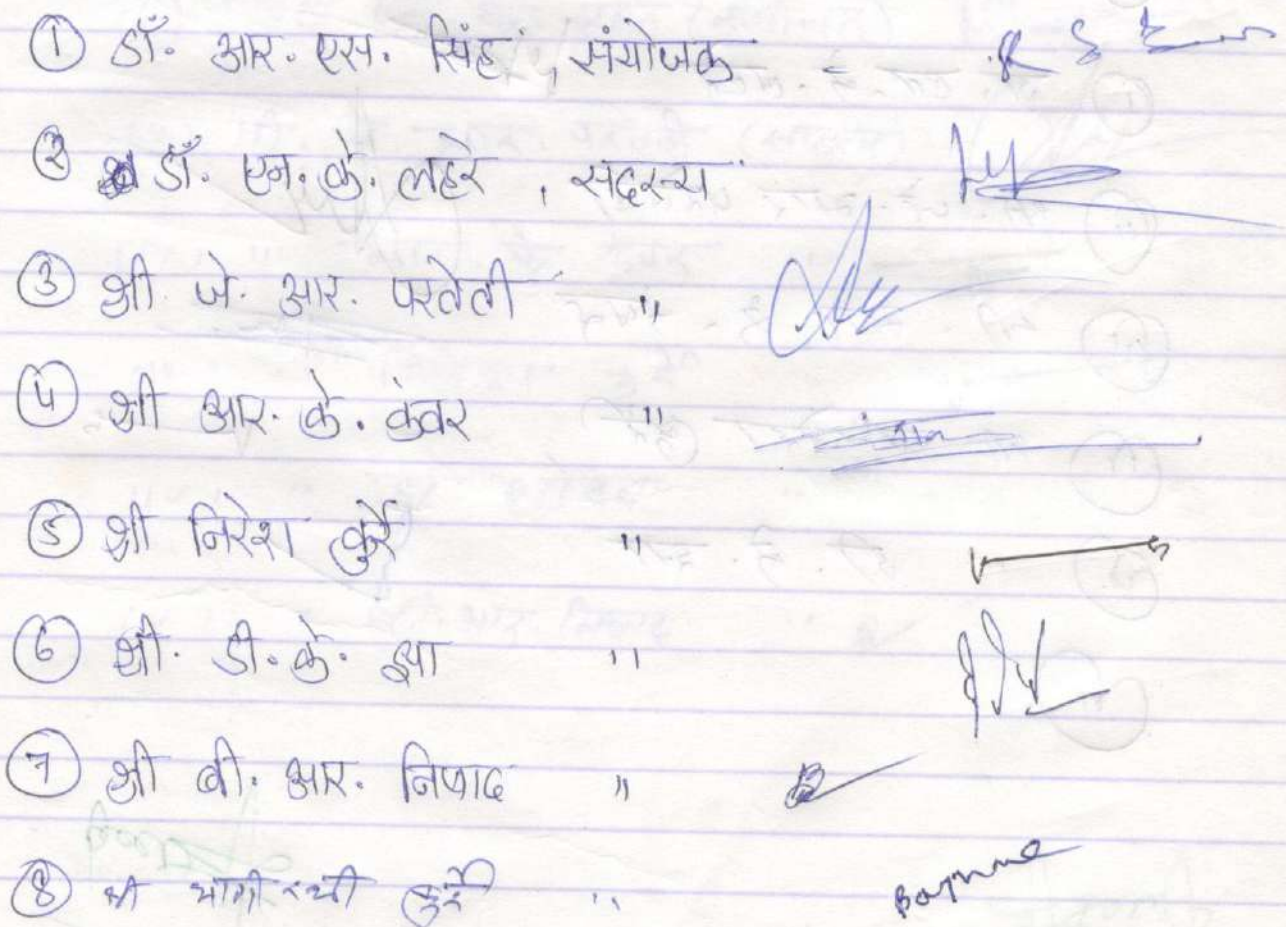 ① डॉ. आर. एस. सिंह, संयोजक - R S
② डॉ. एन. के. लहरे, सदस्य
③ श्री जे. आर. परतेती "
④ श्री आर. के. कंवर "
⑤ श्री निरेश कुर्रे "
⑥ श्री. डी. के. झा "
⑦ श्री बी. आर. निषाद "
⑧ श्री भागीरथी कुर्रे "